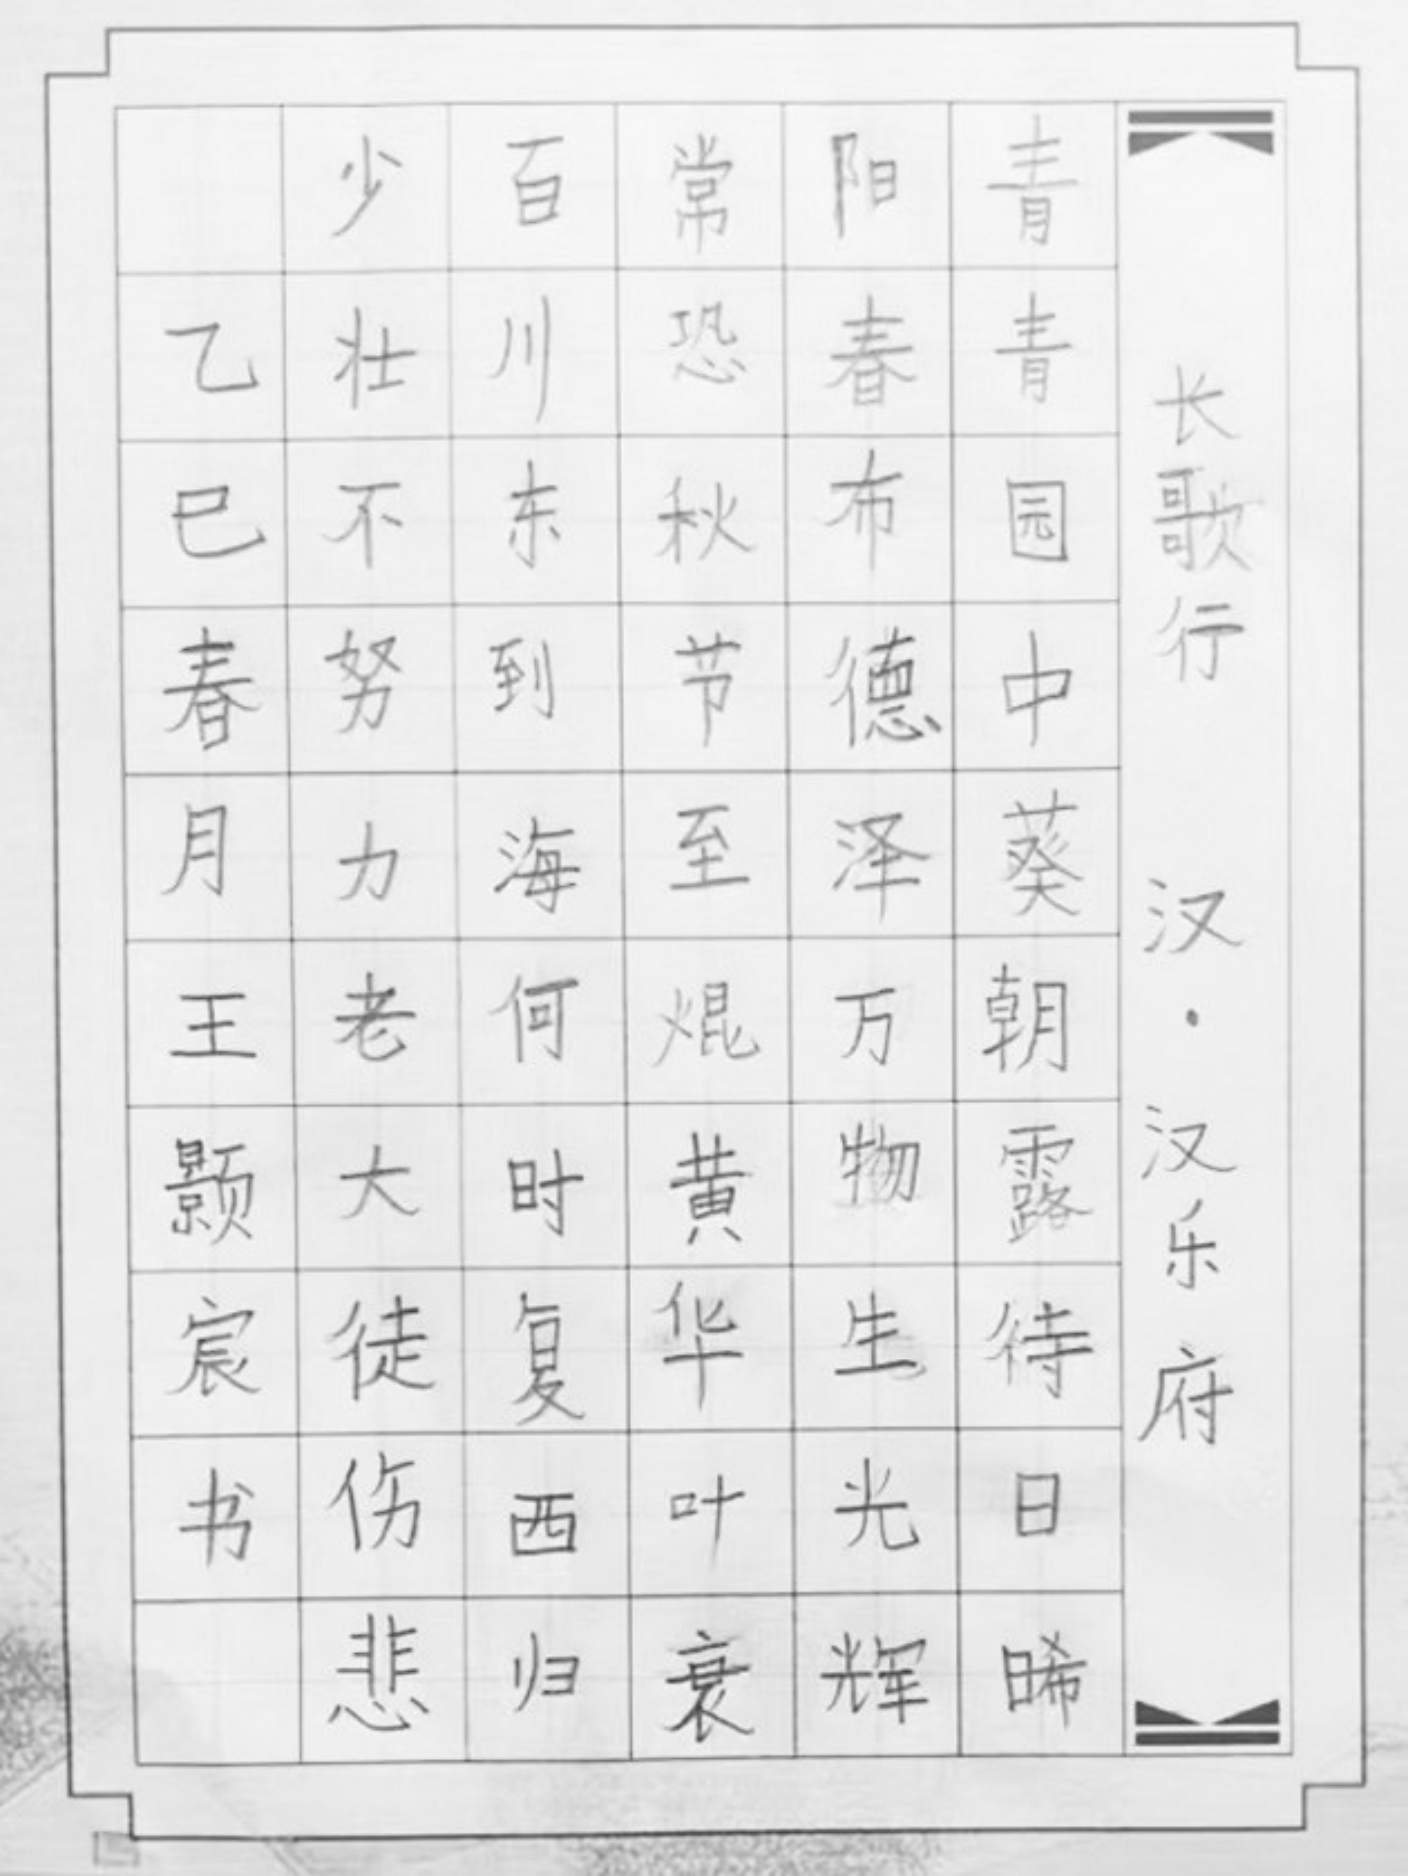 长歌行 汉·汉乐府
青青园中葵朝露待日晞
阳春布德泽万物生光辉
常恐秋节至焜黄华叶衰
百川东到海何时复西归
少壮不努力老大徒伤悲
乙巳春月王颢宸书